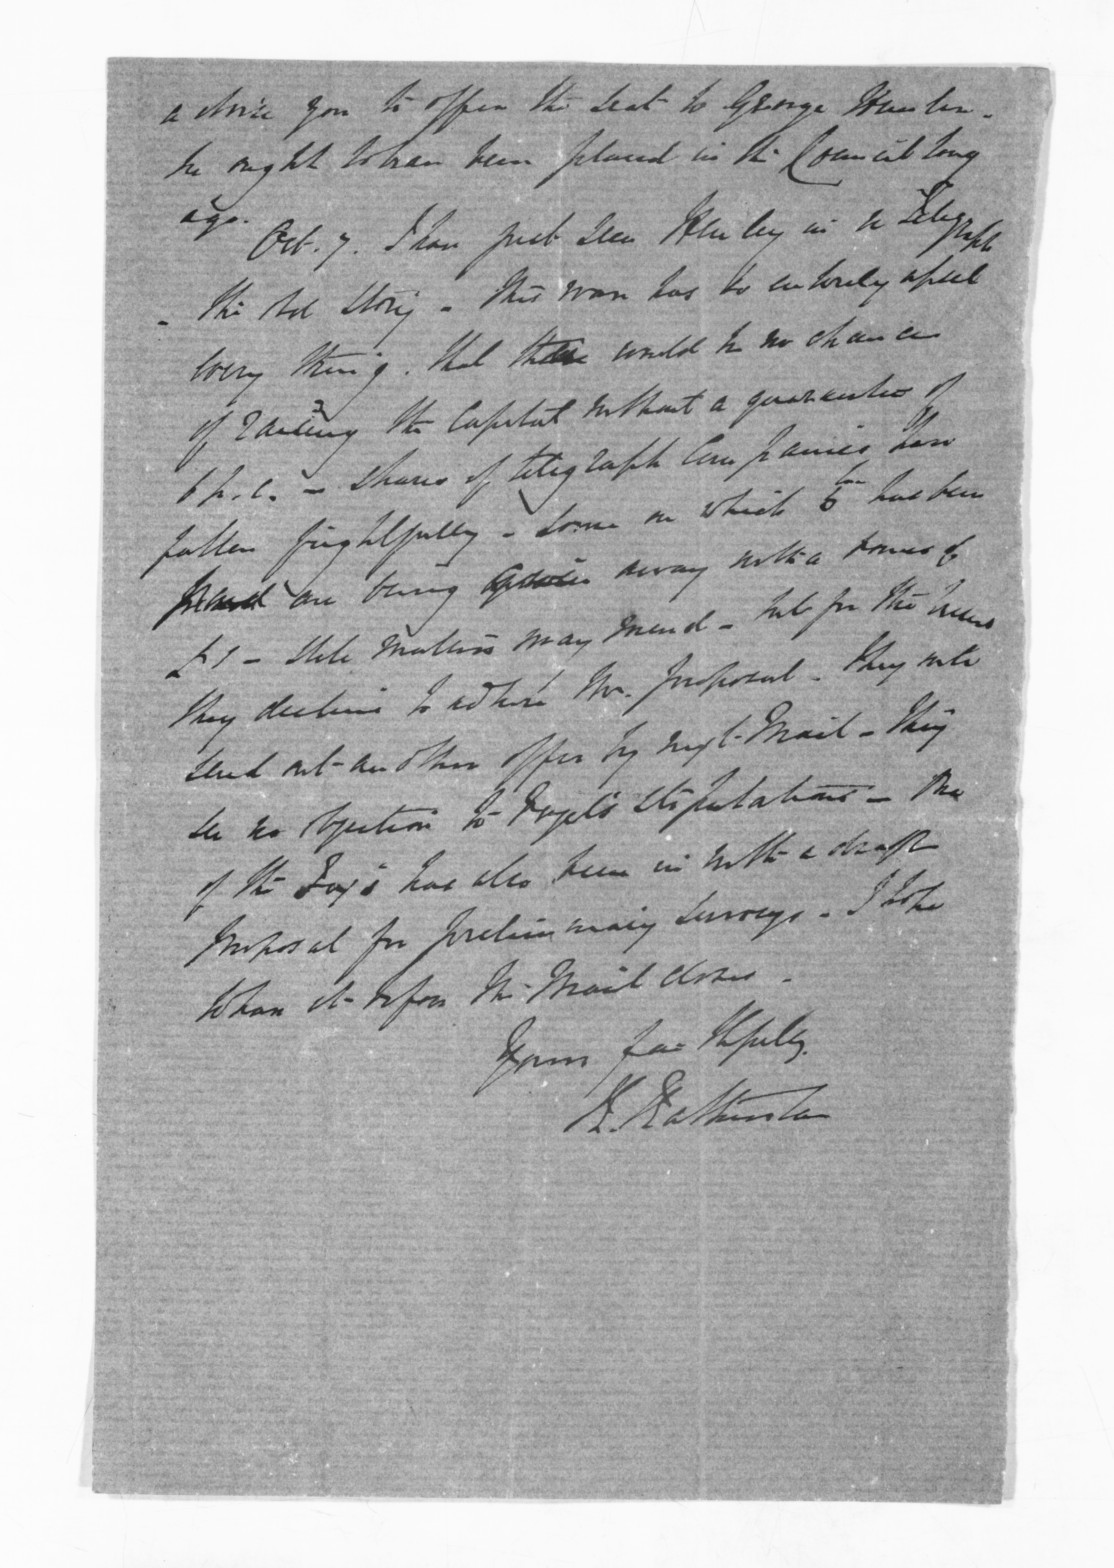 advise you to offer the seat to George Hunter -
he ought to have been placed in the Council long
ago.
Oct. 7. I have just seen Henley in re Telegraph
- the old story - this war has so entirely upset
every thing. that there would be no chance
of raising the Capital without a guarantee of
6 p. c. - shares of telegraph Companies have
fallen frightfully - some on which has been
paid are being away with a bonus of
£1 - still matters may mend - but for the
they decline to adhere proposal - they will
send out another offer by next Mail - they
see no objection to Vogel's stipulations - One
of the Fox's has also been in with a draft
proposal for preliminary surveys - I hope
to have it before the Mail closes -
Yours faithfully.
Featherston